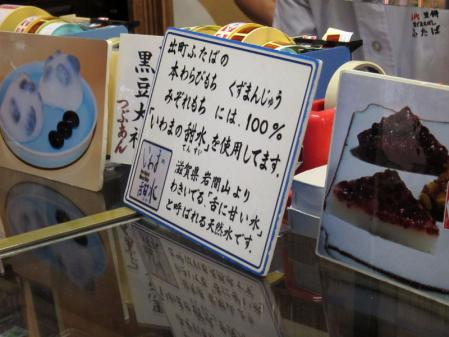 出町ふたばの
本わらびもち くずまんじゅう
みぞれもち には、100%
いわまの「甜水」を使用してます。
てんすい
滋賀県 岩間山 より
わきいでる、「舌に甘い水」
と呼ばれる天然水です。
いわま
甜水
黒豆大福
つぶあん
ふたば